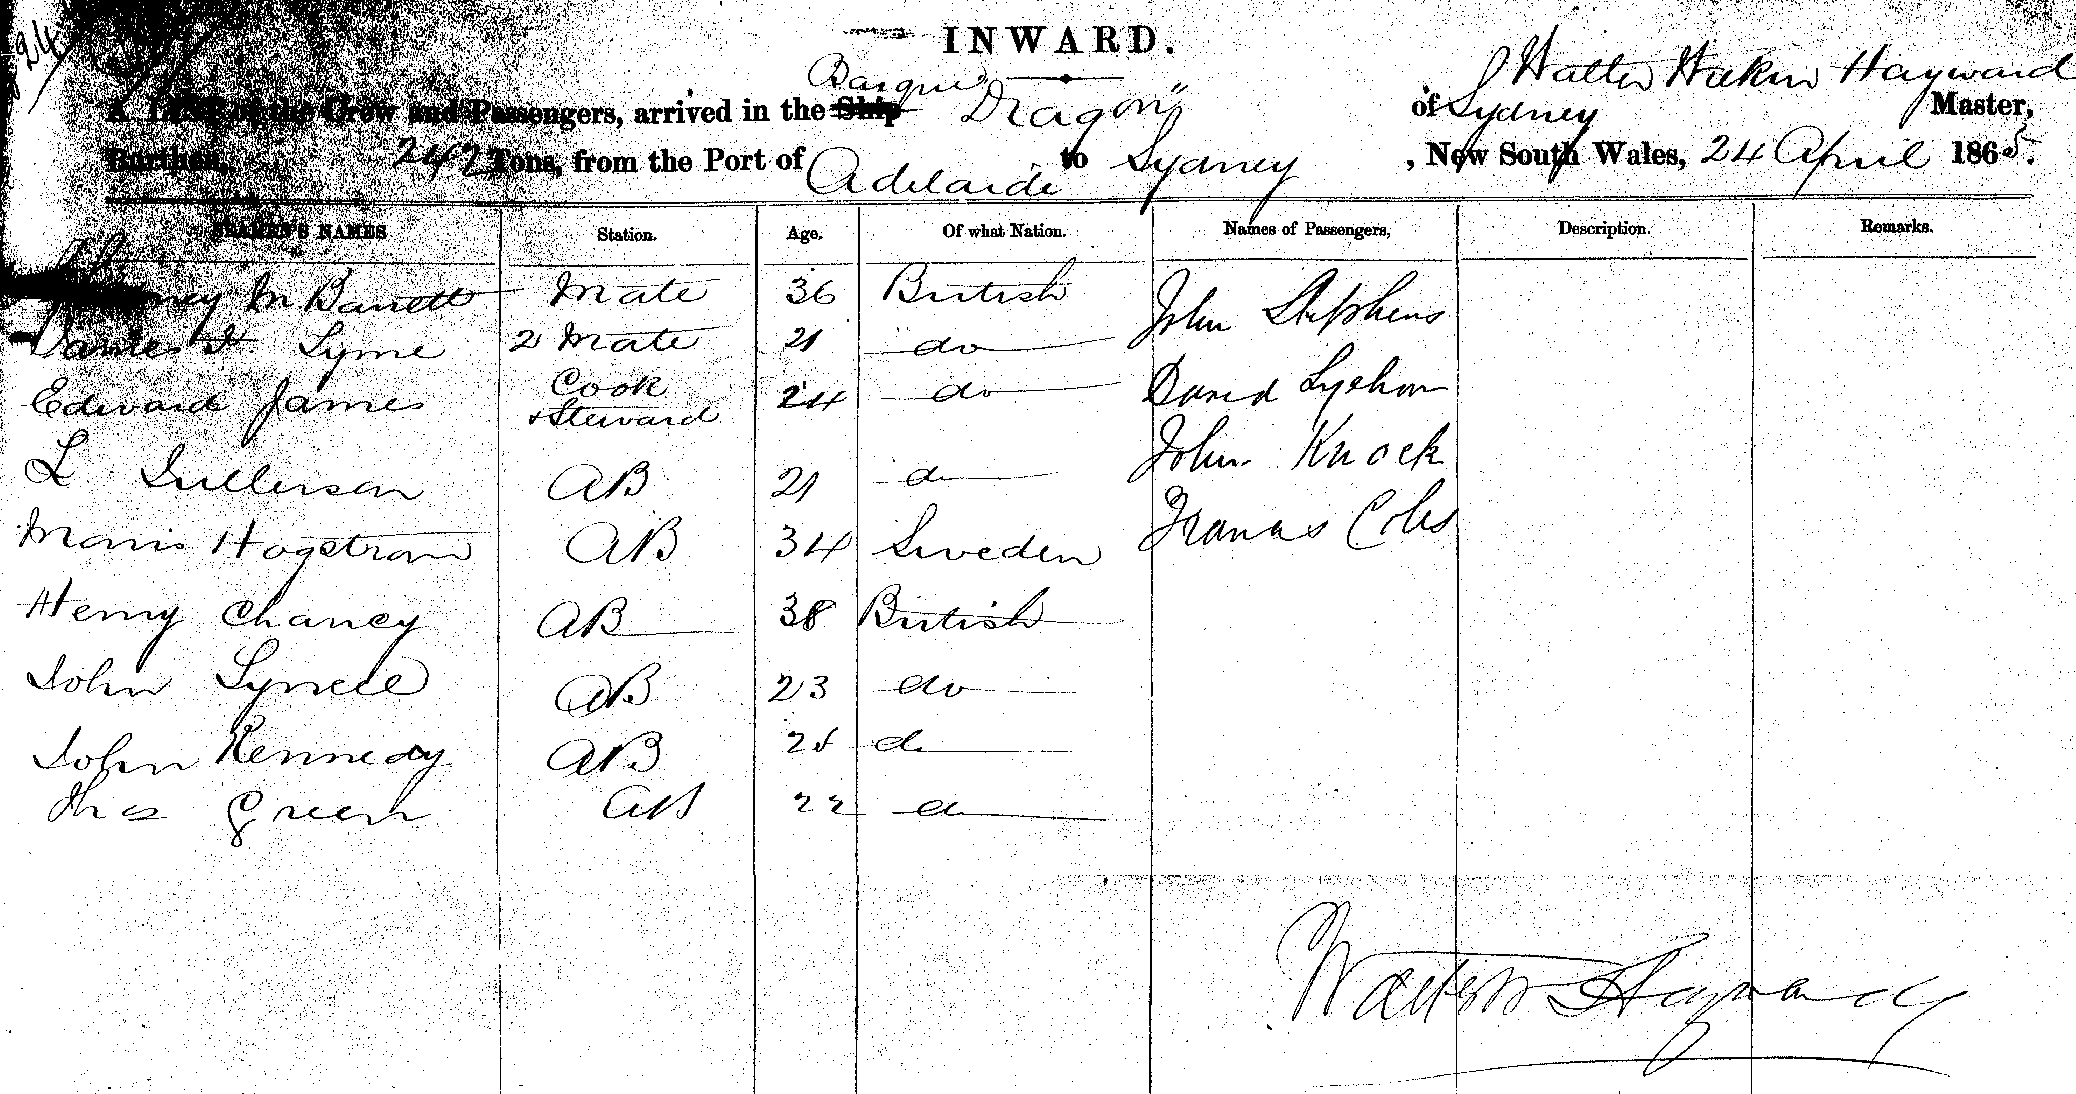 24
INWARD.
Barque Walter Hayward
A LIST of the Crow and Passengers, arrived in the Ship Dragon" of Sydney Master,
Burthen, 242 Tons, from the Port of Adelaide to Sydney, New South Wales, 24 April 1865.
SEAMEN'S NAMES Station. Age. Of what Nation. Names of Passengers, Description. Remarks.
M Barrett Mate 36 British John Stephens
James Syme 2 Mate 21 do
Edward James Cook + Steward 24 do David
L AB 21 do John Knock
Hogstrom AB 34 Sweden Francis Coles
Henry Chancy AB 38 British
John AB 23 do
John Kennedy AB do
Thos Green AB 22 do
Walter W Hayward